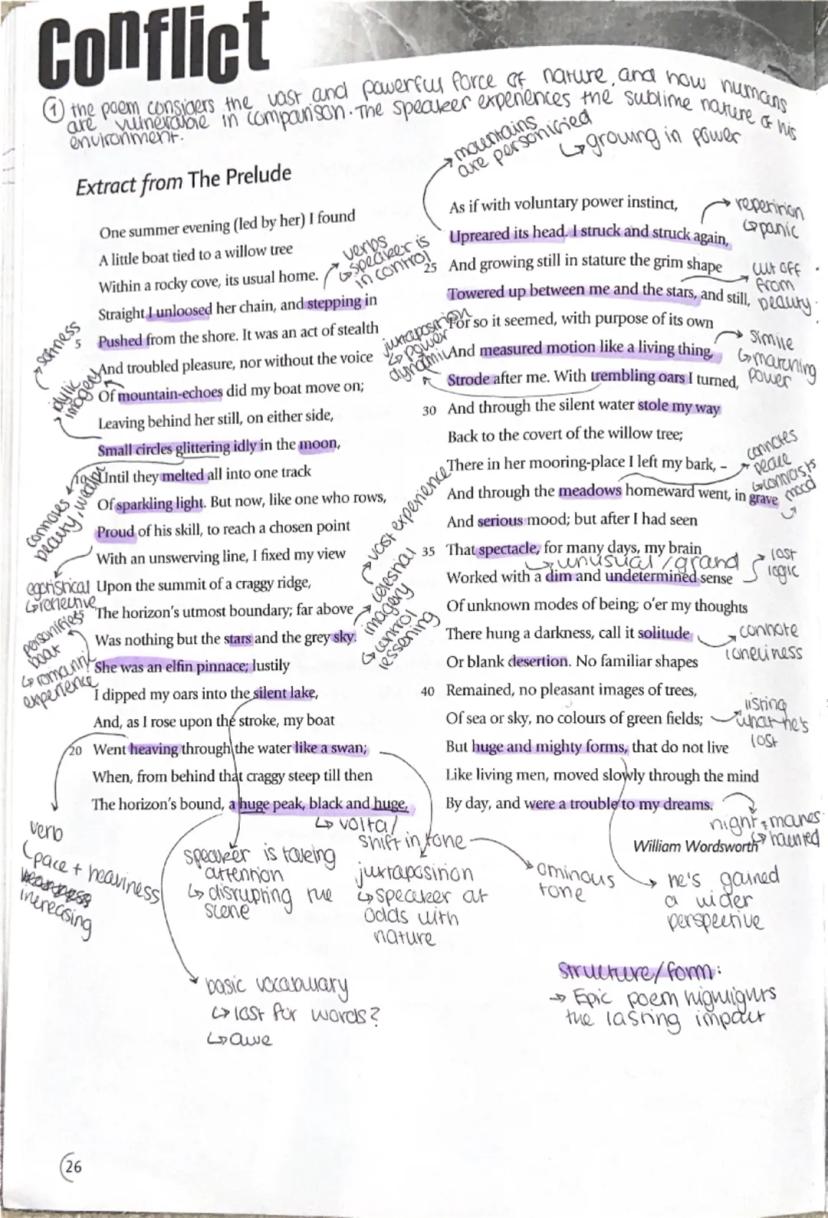 Conflict
① the poem considers the vast and powerful force of nature, and how humans
are vulnerable in comparison. The speaker experiences the sublime nature of his
environment.
mountains
are personified
↳ growing in power
Extract from The Prelude
One summer evening (led by her) I found
A little boat tied to a willow tree
Within a rocky cove, its usual home.
Straight I unloosed her chain, and stepping in
5 Pushed from the shore. It was an act of stealth
And troubled pleasure, nor without the voice
Of mountain-echoes did my boat move on;
Leaving behind her still, on either side,
Small circles glittering idly in the moon,
10 Until they melted all into one track
Of sparkling light. But now, like one who rows,
Proud of his skill, to reach a chosen point
With an unswerving line, I fixed my view
Upon the summit of a craggy ridge,
The horizon's utmost boundary; far above
Was nothing but the stars and the grey sky.
She was an elfin pinnace; lustily
I dipped my oars into the silent lake,
And, as I rose upon the stroke, my boat
20 Went heaving through the water like a swan;
When, from behind that craggy steep till then
The horizon's bound, a huge peak, black and huge,
verbs
↳ speaker is
in control
idyllic
imagery
connotes
beauty,
egotistical
↳ reflective
personifies
boat
↳ romantic
experience
→ vast experience
→ celestial
imagery
↳ control
lessening
verb
↳ pace + heaviness
increasing
speaker is taking
attention
↳ disrupting the
scene
↳ volta/
shift in tone
juxtaposition
↳ speaker at
odds with
nature
ominous
tone
basic vocabulary
↳ lost for words?
↳ awe
As if with voluntary power instinct,
Upreared its head. I struck and struck again,
25 And growing still in stature the grim shape
Towered up between me and the stars, and still,
For so it seemed, with purpose of its own
And measured motion like a living thing,
Strode after me. With trembling oars I turned,
30 And through the silent water stole my way
Back to the covert of the willow tree;
There in her mooring-place I left my bark, –
And through the meadows homeward went, in grave
And serious mood; but after I had seen
35 That spectacle, for many days, my brain
Worked with a dim and undetermined sense
Of unknown modes of being; o'er my thoughts
There hung a darkness, call it solitude
Or blank desertion. No familiar shapes
40 Remained, no pleasant images of trees,
Of sea or sky, no colours of green fields;
But huge and mighty forms, that do not live
Like living men, moved slowly through the mind
By day, and were a trouble to my dreams.
William Wordsworth
repetition
↳ panic
cut off
from
beauty
juxtaposition
↳ power
dynamic
simile
↳ marching
power
connotes
peace
↳ contrasts
mood
↳ unusual/grand
lost
logic
connote
loneliness
listing
what he's
lost
nightmares
↳ haunted
he's gained
a wider
perspective
structure/form:
→ Epic poem highlights
the lasting impact
26